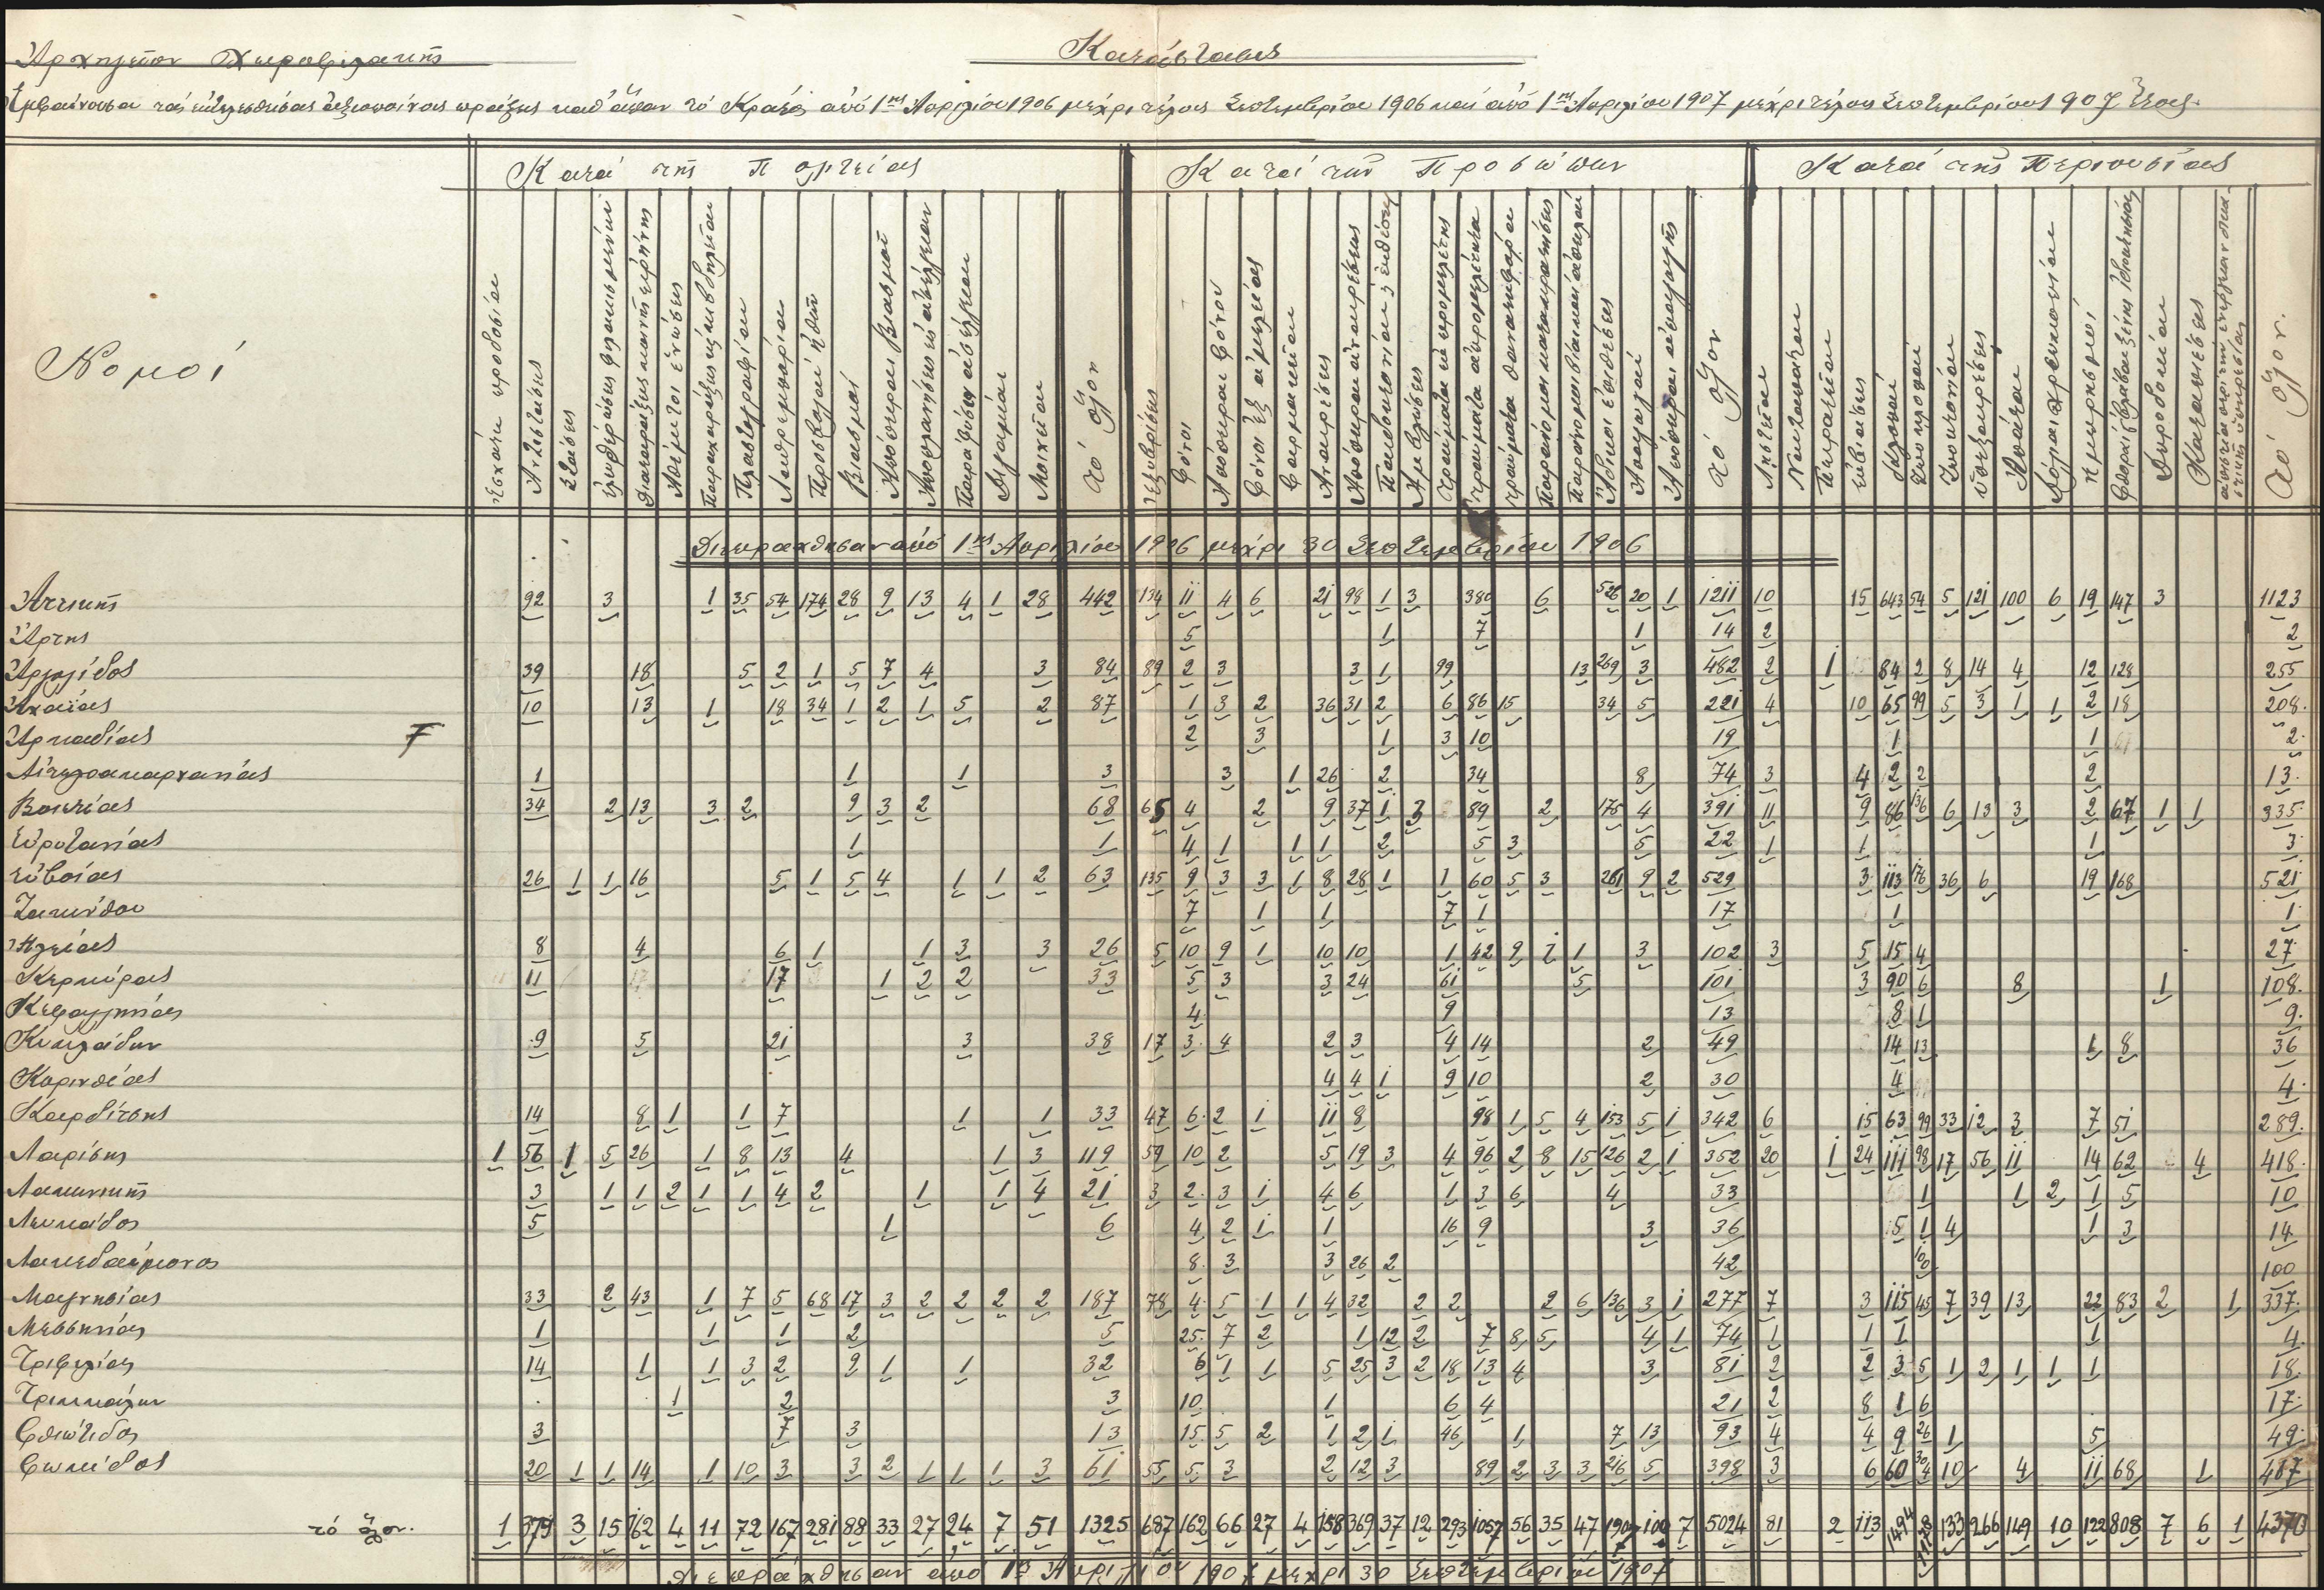 Ἀρχηγεῖον Χωροφυλακῆς
Κατάστασις
Ἐμφαίνουσα τάς ἐκτελεσθείσας ἀξιοποίνους πράξεις καθ' ἅπαν τό Κράτος ἀπό 1ης Ἀπριλίου 1906 μέχρι τέλους Σεπτεμβρίου 1906 καί ἀπό 1ης Ἀπριλίου 1907 μέχρι τέλους Σεπτεμβρίου 1907
Νομοί
Κατά τῆς Πολιτείας
Κατά τῶν Προσώπων
Κατά τῆς Περιουσίας
Ἐσχάτη προδοσία
Ἀντιστάσεις
Στάσεις
Πλαστογραφίαι
Βιασμοί
Ἀπόπειραι βιασμοῦ
Διγαμίαι
Μοιχεῖαι
τό ὅλον
Ἐξυβρίσεις
Φόνοι
Ἀπόπειραι φόνου
Φόνοι ἐξ ἀμελείας
Φαρμακεῖαι
Ἀναιρέσεις
Ἀπόπειραι ἀναιρέσεως
Ἀμβλώσεις
Τραύματα ἐκ προμελέτης
Τραύματα ἀπρομελέτητα
Τραύματα θανατηφόρα
Ἀπαγωγαί
Ἀπόπειραι ἀπαγωγῆς
τό ὅλον
Λῃστεῖαι
Πειρατεῖαι
Ἐκβιάσεις
Κλοπαί
Ζωοκλοπαί
Ζωοκτονίαι
Ὑπεξαιρέσεις
Ἀπάται
Ἐμπρησμοί
Δωροδοκίαι
Καταπιέσεις
τό ὅλον
Διεπράχθησαν ἀπό 1ης Ἀπριλίου 1906 μέχρι 30 Σεπτεμβρίου 1906
Ἀττικῆς 92 3 1 35 54 174 28 9 13 4 1 28 442 134 11 4 6 21 98 1 3 380 6 526 20 1 1211 10 15 643 54 5 121 100 6 19 147 3 1123
Ἄρτης 5 1 7 1 14 2 2
Ἀργολίδος 39 18 5 2 1 5 7 4 3 84 89 2 3 3 1 99 13 269 3 482 2 1 84 2 8 14 4 12 128 255
Ἀχαΐας 10 13 1 18 34 1 2 1 5 2 87 1 3 2 36 31 2 6 86 15 34 5 221 4 10 65 99 5 3 1 1 2 18 208
Ἀρκαδίας F 2 3 1 3 10 19 1 1 2
Αἰτωλοακαρνανίας 1 1 1 3 3 1 26 2 34 8 74 3 4 2 2 2 13
Βοιωτίας 34 2 13 3 2 9 3 2 68 65 4 2 9 37 1 3 89 2 175 4 391 11 9 86 136 6 13 3 2 67 1 1 335
Εὐρυτανίας 1 1 4 1 1 1 2 5 3 5 22 1 1 1 3
Εὐβοίας 26 1 1 16 5 1 5 4 1 1 2 63 135 9 3 3 1 8 28 1 1 60 5 3 261 9 2 529 3 113 176 36 6 19 168 521
Ζακύνθου 7 1 1 7 1 17 1 1
Ἠλείας 8 4 6 1 1 3 3 26 5 10 9 1 10 10 1 42 9 1 1 3 102 3 5 15 4 27
Κερκύρας 11 17 1 2 2 33 5 3 3 24 61 5 101 3 90 6 8 1 108
Κεφαλληνίας 4 9 13 8 1 9
Κυκλάδων 9 5 21 3 38 17 3 4 2 3 4 14 2 49 14 13 1 8 36
Κορινθίας 4 4 1 9 10 2 30 4 4
Καρδίτσης 14 8 1 1 7 1 1 33 47 6 2 1 11 8 98 1 5 4 153 5 1 342 6 15 63 99 33 12 3 7 51 289
Λαρίσης 1 56 1 5 26 1 8 13 4 1 3 119 59 10 2 5 19 3 4 96 2 8 15 126 2 1 352 20 1 24 111 98 17 56 11 14 62 4 418
Λακωνικῆς 3 1 1 2 1 1 4 2 1 1 4 21 3 2 3 1 4 6 1 3 6 4 33 1 1 2 1 5 10
Λευκάδος 5 1 6 4 2 1 1 16 9 3 36 5 1 4 1 3 14
Λακεδαίμονος 8 3 3 26 2 42 100 100
Μαγνησίας 33 2 43 1 7 5 68 17 3 2 2 2 2 187 78 4 5 1 1 4 32 2 2 2 6 136 3 1 277 7 3 115 45 7 39 13 22 83 2 1 337
Μεσσηνίας 1 1 1 2 5 25 7 2 1 12 2 7 8 5 4 1 74 1 1 1 1 4
Τριφυλίας 14 1 1 3 2 9 1 1 32 6 1 1 5 25 3 2 18 13 4 3 81 2 2 3 5 1 2 1 1 1 18
Τρικκάλων 1 2 3 10 1 6 4 21 2 8 1 6 17
Φθιώτιδος 3 7 3 13 15 5 2 1 2 1 46 1 7 13 93 4 4 9 26 1 5 49
Φωκίδος 20 1 1 14 1 10 3 3 2 1 1 1 3 61 55 5 3 2 12 3 89 2 3 3 216 5 398 3 6 60 304 10 4 11 68 1 467
τό ὅλον 1 379 3 15 162 4 11 72 167 281 88 33 27 24 7 51 1325 687 162 66 27 4 158 369 37 12 293 1057 56 35 47 1907 100 7 5024 81 2 113 1494 1178 133 266 149 10 122 808 7 6 1 4370
Διεπράχθησαν ἀπό 1ης Ἀπριλίου 1907 μέχρι 30 Σεπτεμβρίου 1907